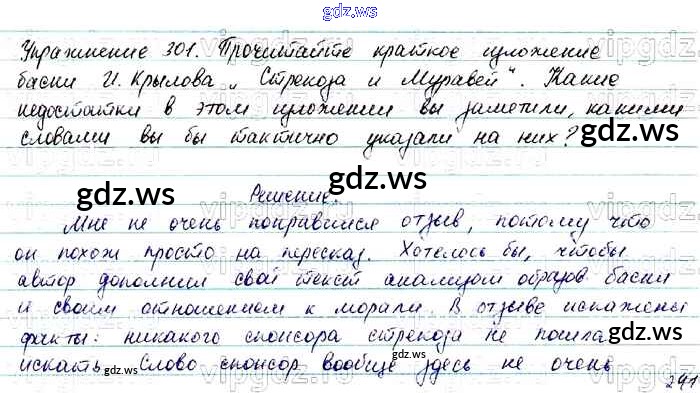 gdz.ws
Упражнение 301. Прочитайте краткое изложение
басни И. Крылова „Стрекоза и Муравей“. Какие
недостатки в этом изложении вы заметили, какими
словами вы бы тактично указали на них?
gdz.ws
gdz.ws
Решение.
gdz.ws
Мне не очень понравился отзыв, потому что
он похож просто на пересказ. Хотелось бы, чтобы
автор дополнил свой текст анализом образов басни
и своим отношением к морали. В отзыве искажены
факты: никакого спонсора стрекоза не пошла
искать. Слово спонсор вообще здесь не очень
gdz.ws
gdz.ws
gdz.ws
291